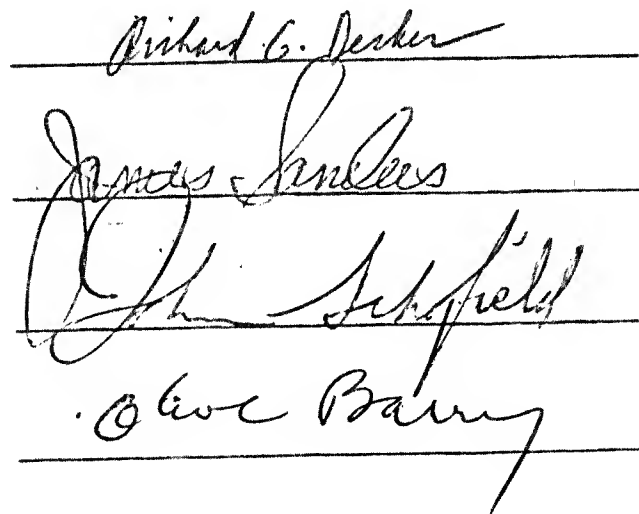 Richard G. Decker
James Sanders
John Schofield
Olive Barry